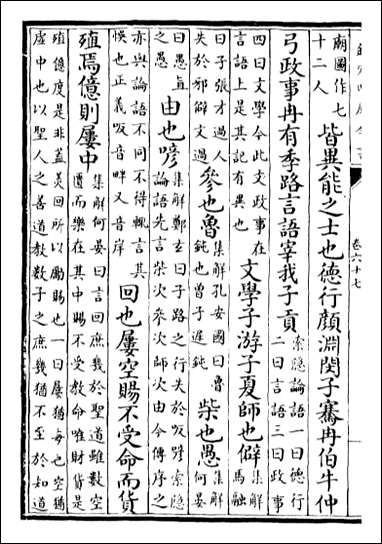 卷六十七
廟圖作七
十二人
皆異能之士也德行顏淵閔子騫冉伯牛仲
弓政事冉有季路言語宰我子貢
索隱論語一曰德行
二曰言語三曰政事
四曰文學今此文政事在
言語上是其記有異也
文學子游子夏師也僻
集解
馬融
曰子張才過人
失於邪僻文過
參也魯
集解孔安國曰魯
鈍也曾子遲鈍
柴也愚
集解
何晏
曰愚直
之愚
由也喭
集解鄭玄曰子路之行失於吸喭索隱
論語先言柴次參次師次由今傳序之
亦與論語不同不得輒言其
悞也正義吸音畔又音岸
回也屢空賜不受命而貨
殖焉億則屢中
集解何晏曰言回庶幾於聖道雖數空
匱而樂在其中賜不受教命唯財貨是
殖億度是非蓋美回所以勵賜也一曰屢猶每也空猶
虛中也以聖人之善道教數子之庶幾猶不至於知道